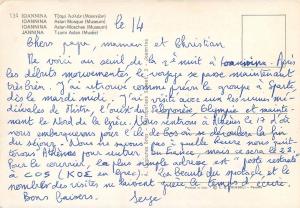 134 IOANNINA
IOANNINA Aslan Mosque (Museum)
IOANNINA Aslan-Moschee (Museum)
JANNINA Tzami Aslan (Musée)
le 14
Chers papa, maman et Christian
Me voici au seuil de la 2e nuit à Ioannina. Après
les débuts mouvementés le voyage se passe maintenant
très bien. J'ai retrouvé comme prévu le groupe à Sparte
dès le mardi midi. J'ai visité avec eux les ruines mé-
diévales de Mistra, l'ouest Péloponèse, Olympie et mainte-
nant le Nord de la Grèce. Nous rentrons à Athènes le 17 d'où
nous embarquerons pour l'île de Cos où se déroulera la fin
du séjour. Nous ne savons pas à quelle heure nous quit-
terons Athènes pour rentrer en France, mais ce sera le 22.
Pour le courrier, la plus simple adresse est "poste restante
à COS (ΚΩΣ en Grec). La beauté du spectacle et le
nombre des visites ne laissent guère le temps d'écrire.
Bons baisers. Serge